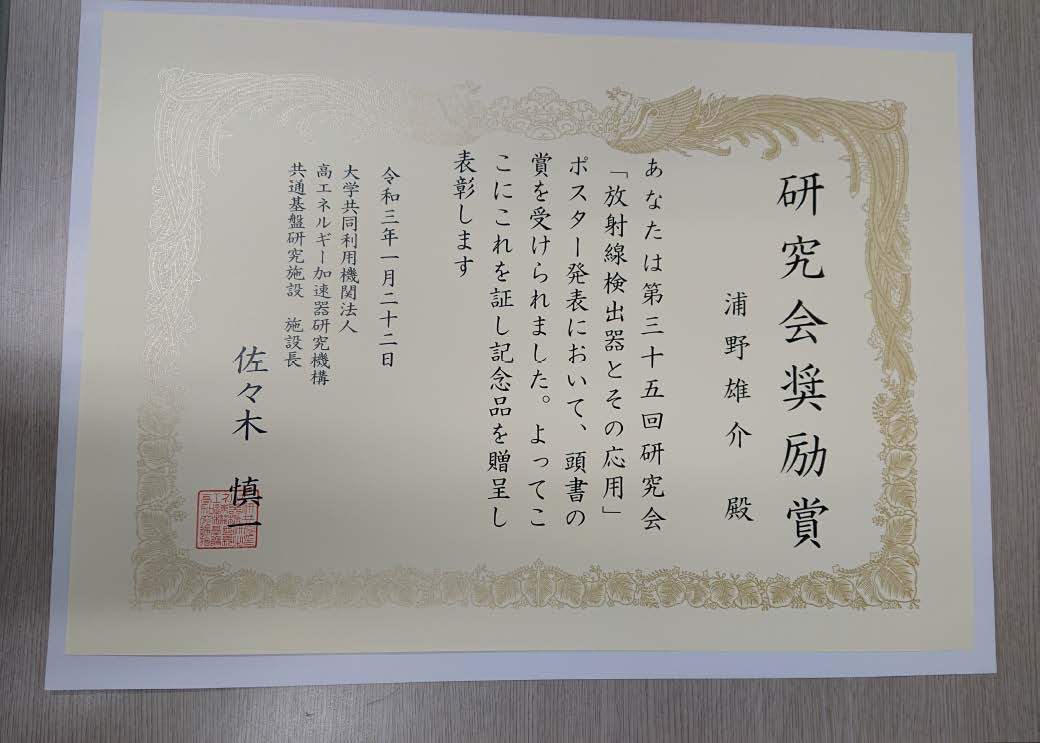 研究会奨励賞
浦野雄介 殿
あなたは第三十五回研究会
「放射線検出器とその応用」
ポスター発表において、頭書の
賞を受けられました。よってこ
こにこれを証し記念品を贈呈し
表彰します
令和三年一月二十二日
大学共同利用機関法人
高エネルギー加速器研究機構
共通基盤研究施設 施設長
佐々木 慎一